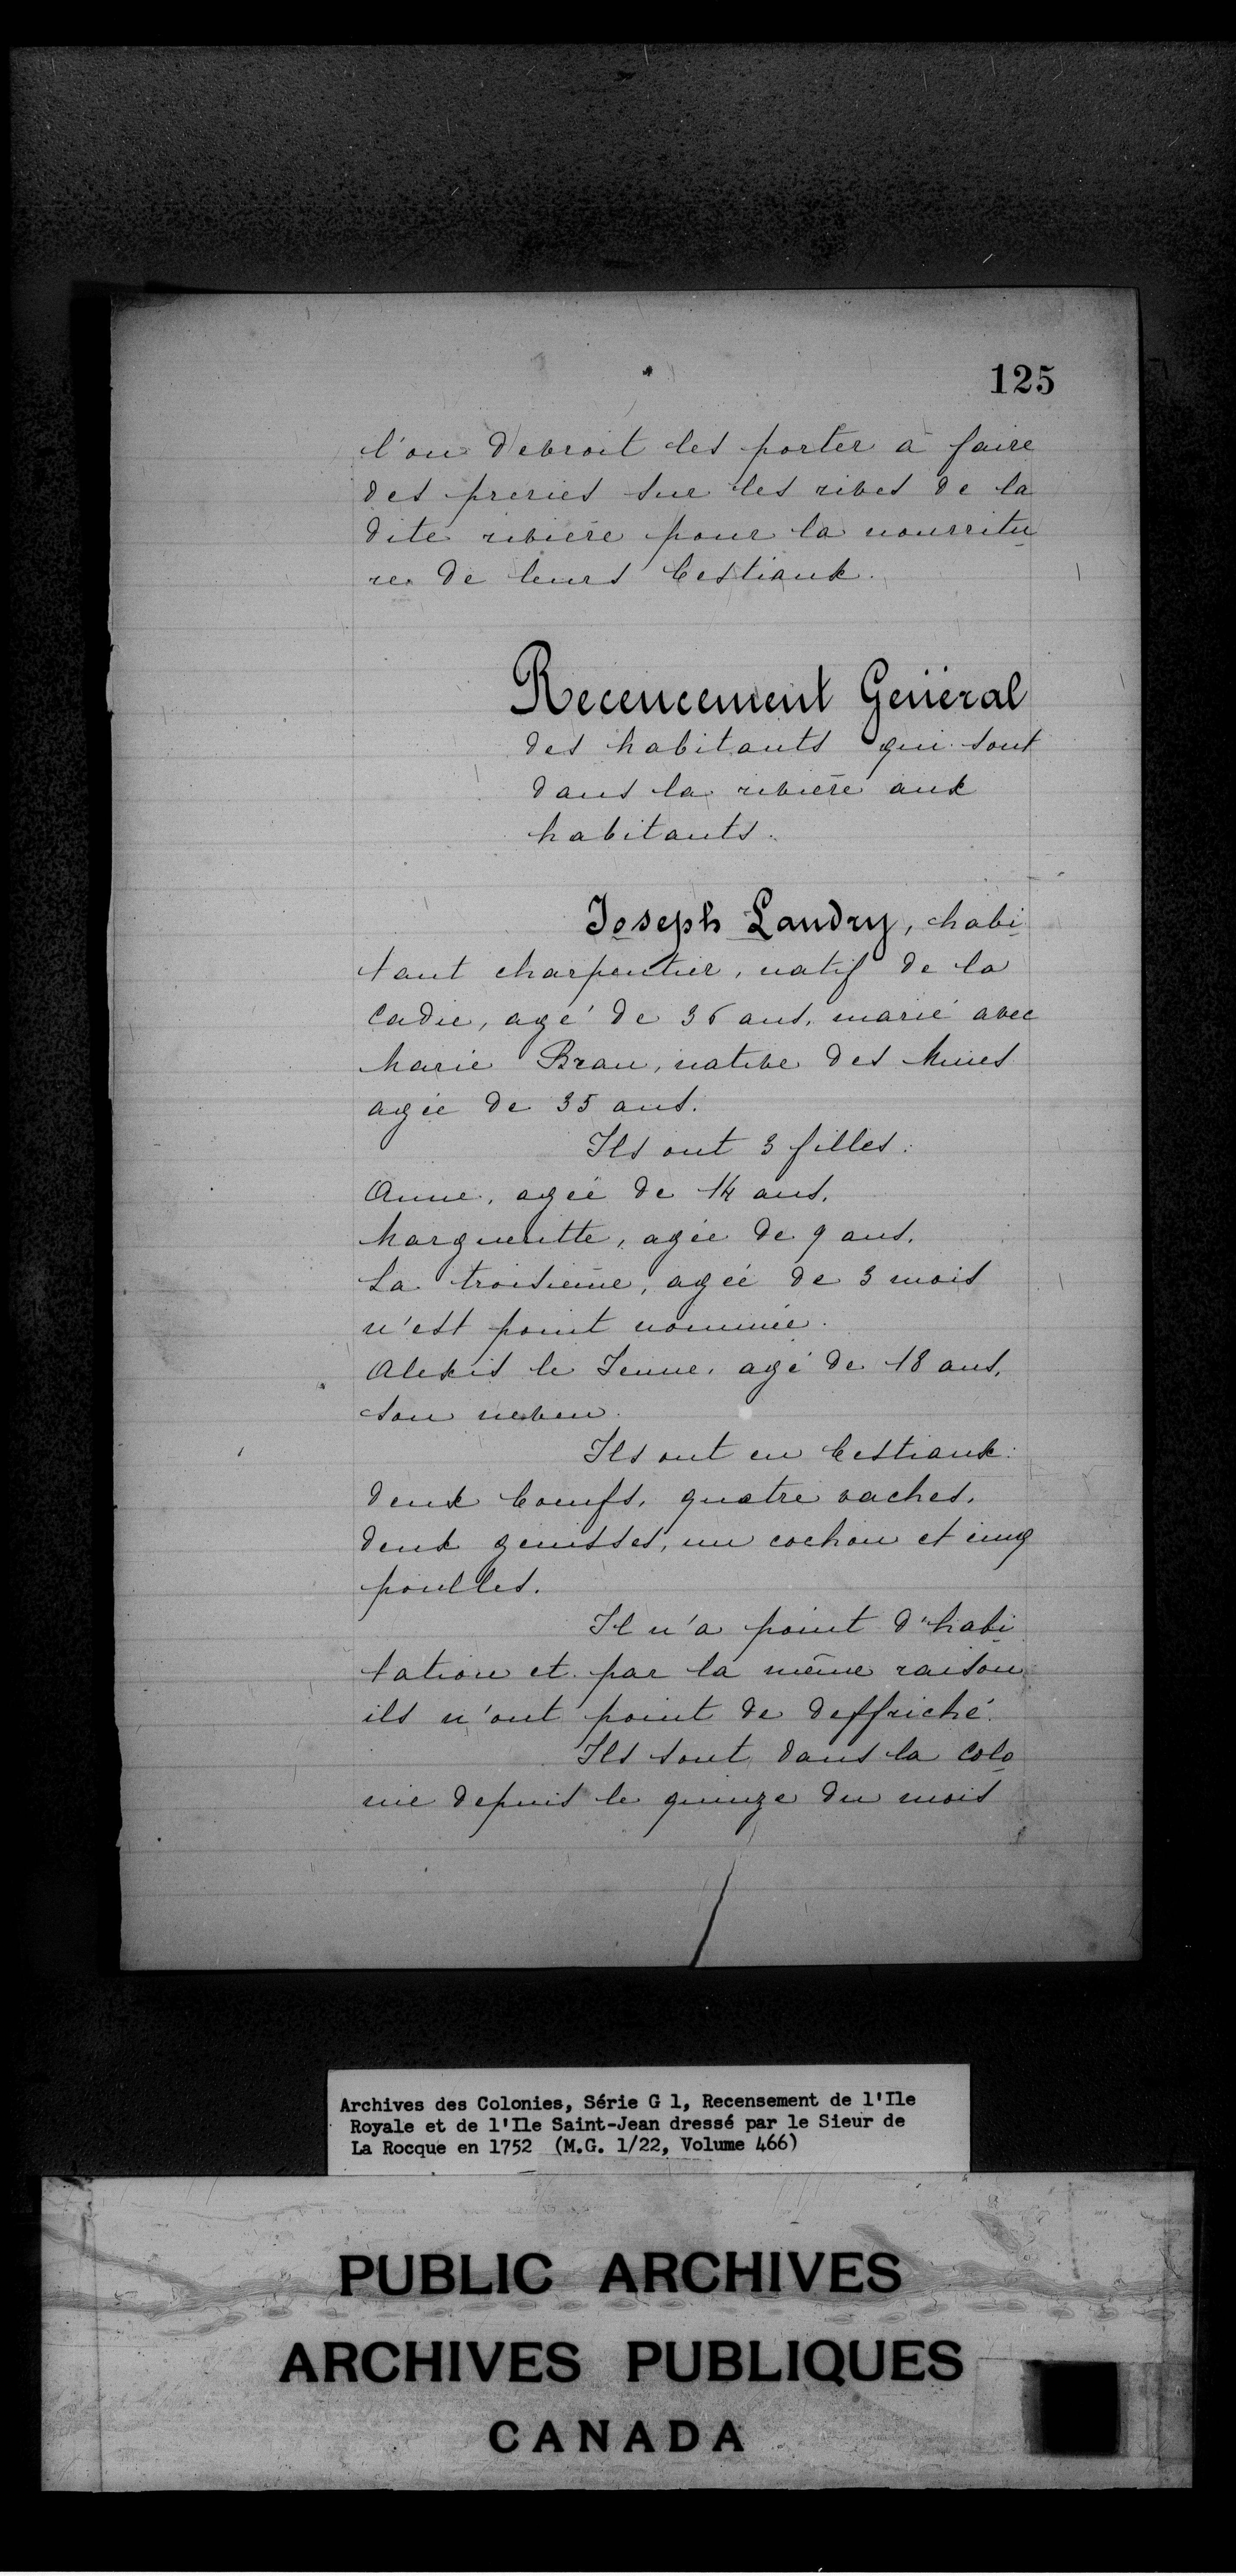 125
l'on devroit les porter à faire
des preries sur les rives de la
dite rivière pour la nourritu
re de leurs bestiaux.
Recencement Général
des habitants qui sont
dans la rivière aux
habitants.
Joseph Landry, habi
tant charpentier, natif de la
Cadie, agé de 36 ans, marié avec
Marie Brau, native des Mines
agée de 35 ans.
Ils ont 3 filles:
Anne, agée de 14 ans.
Margueritte, agée de 9 ans.
La troisième, agée de 3 mois
n'est point nommée.
Alexis le Jeune, agé de 18 ans,
son neveu.
Ils ont en bestiaux:
deux boeufs, quatre vaches,
deux genisses, un cochon et cinq
poulles.
Il n'a point d'habi
tation et par la même raison
ils n'ont point de deffriché.
Ils sont dans la colo
nie depuis le quinze du mois
Archives des Colonies, Série G 1, Recensement de l'Ile
Royale et de l'Ile Saint-Jean dressé par le Sieur de
La Rocque en 1752 (M.G. 1/22, Volume 466)
PUBLIC ARCHIVES
ARCHIVES PUBLIQUES
CANADA